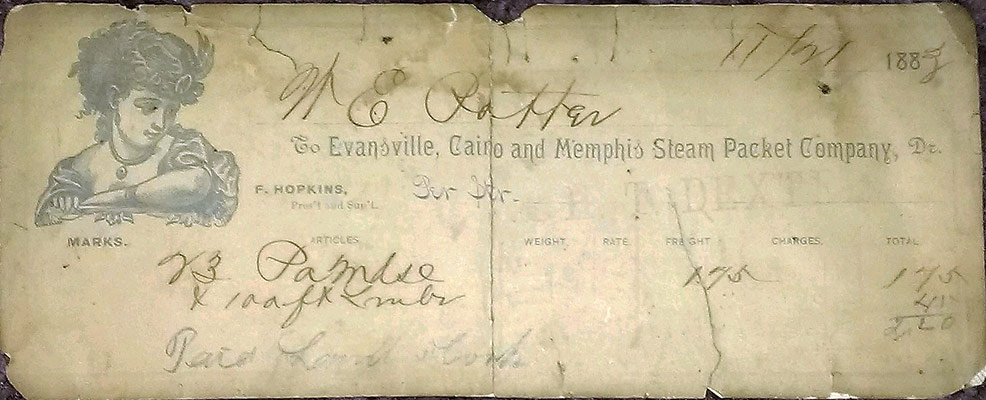 11/21 188
W E Potter
To Evansville, Cairo and Memphis Steam Packet Company, Dr.
F. HOPKINS, Per Str.
Pres't and Sup't.
MARKS. ARTICLES. WEIGHT. RATE. FREIGHT CHARGES. TOTAL
23 175 175
& 100 ft 45
2.20
Paid